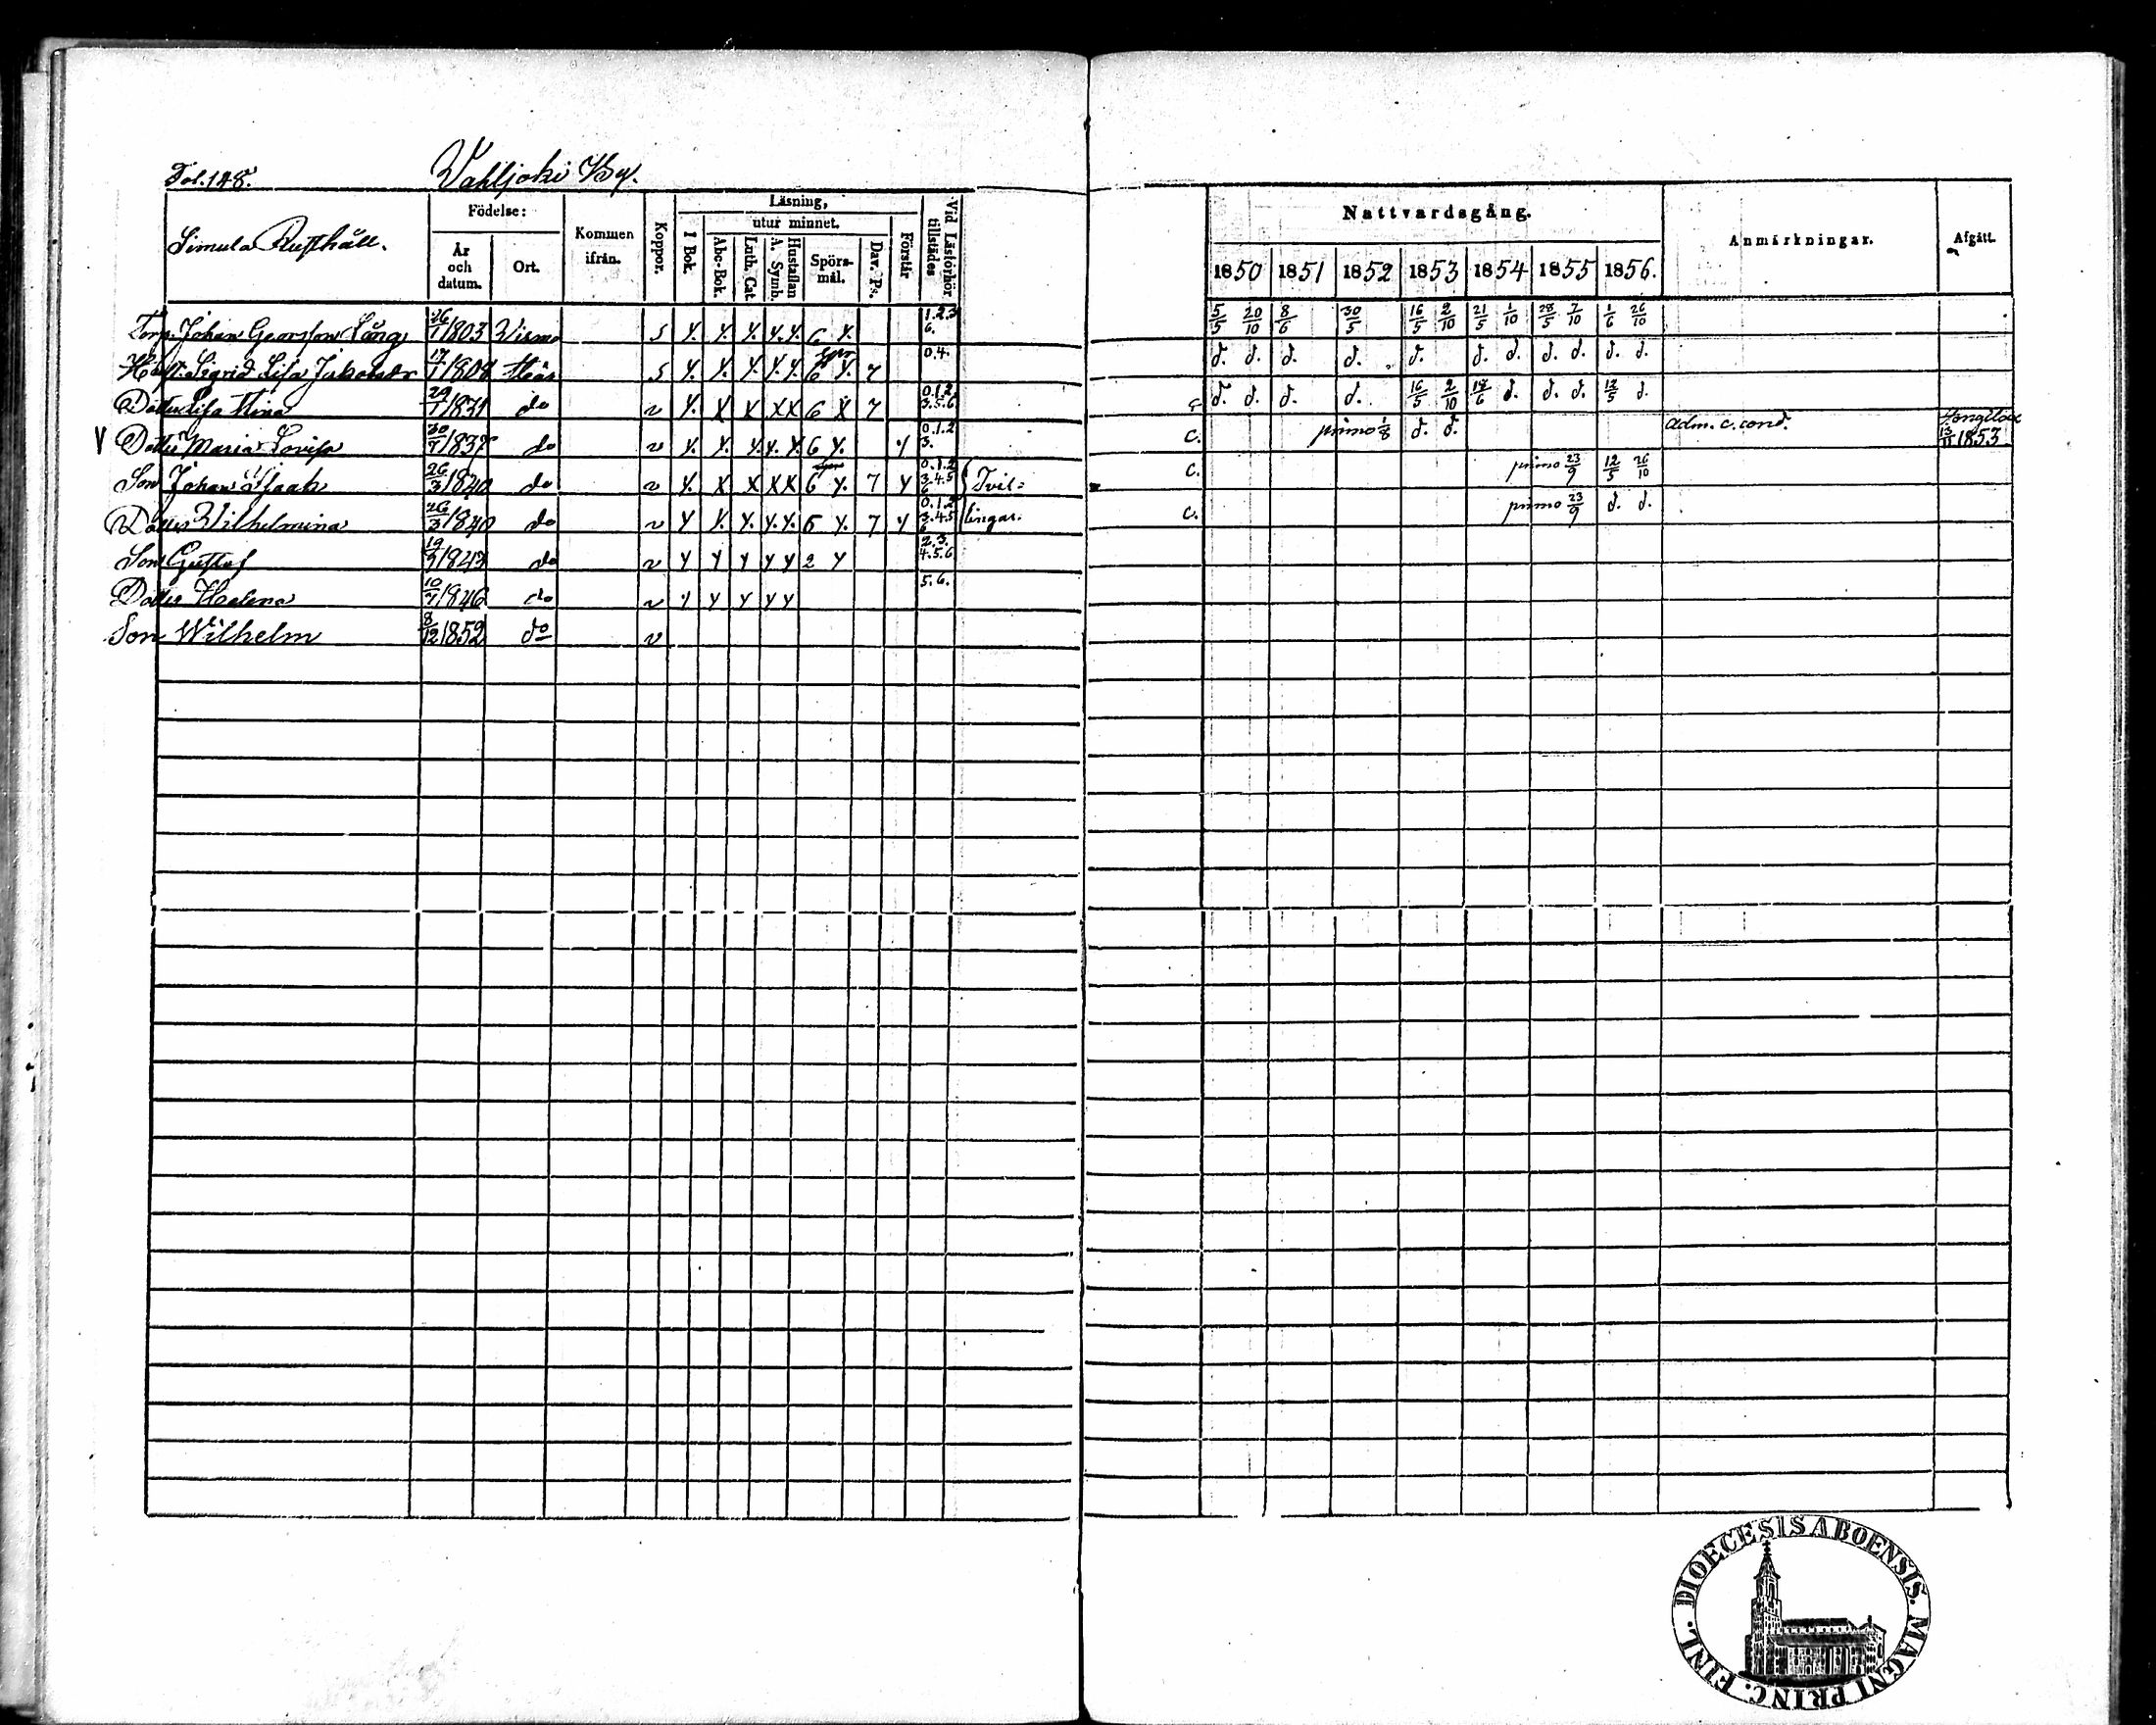 Fol. 148. Vahljoki By.
Simula Rusthåll.
Födelse:
År och datum.
Ort.
Kommen ifrån.
Koppor.
Läsning,
I Bok.
utur minnet.
Abc-Bok.
Luth. Cat.
Hustaflan A. Symb.
Spörs-mål.
Dav. Ps.
Förstår
Vid Läsförhör tillstädes
Nattvardsgång.
1850 1851 1852 1853 1854 1855 1856.
Anmärkningar.
Afgått.
Torp. Johan Georgsson Lång 26/1 1803 S y. y. y. y. y. 6 y. 1.2.3 6. 5/5 20/10 8/6 30/5 16/5 2/10 21/5 1/10 28/5 7/10 1/6 26/10
Sigrid Lisa 17/1 1808 Här S y. y. y. y. y. 6 y. 7 0.4. d. d. d. d. d. d. d. d. d. d. d.
Dotter Lisa Stina 29/1 1831 do v y. X X X X 6 X 7 0.1.2 3.5.6 d. d. d. d. 16/5 2/10 18/6 d. d. d. 12/5 d.
V Dotter Maria Lovisa 30/7 1837 do v y. y. y. y. y. 6 y. y 0.1.2 3. c. primo 1/8 d. d. adm. c. cond. 13/11 1853
Son Johan Isaak 26/3 1840 do v y. X X X X 6 y. 7 y 0.1.2 3.4.5 6 Tvil= c. primo 23/9 12/5 26/10
Dotter Wilhelmina 26/3 1840 do v y y. y. y. y. 6 y. 7 y 0.1.2 3.4.5 6 lingar. c. primo 23/9 d. d.
Son Gustaf 19/9 1843 do v y y y y y 2 y 2.3. 4.5.6
Dotter Helena 10/7 1846 do v y y y y y 5.6.
Son Wilhelm 8/12 1852 do v
DIOECESIS ABOENSIS. MAGNI PRINC. FINL.